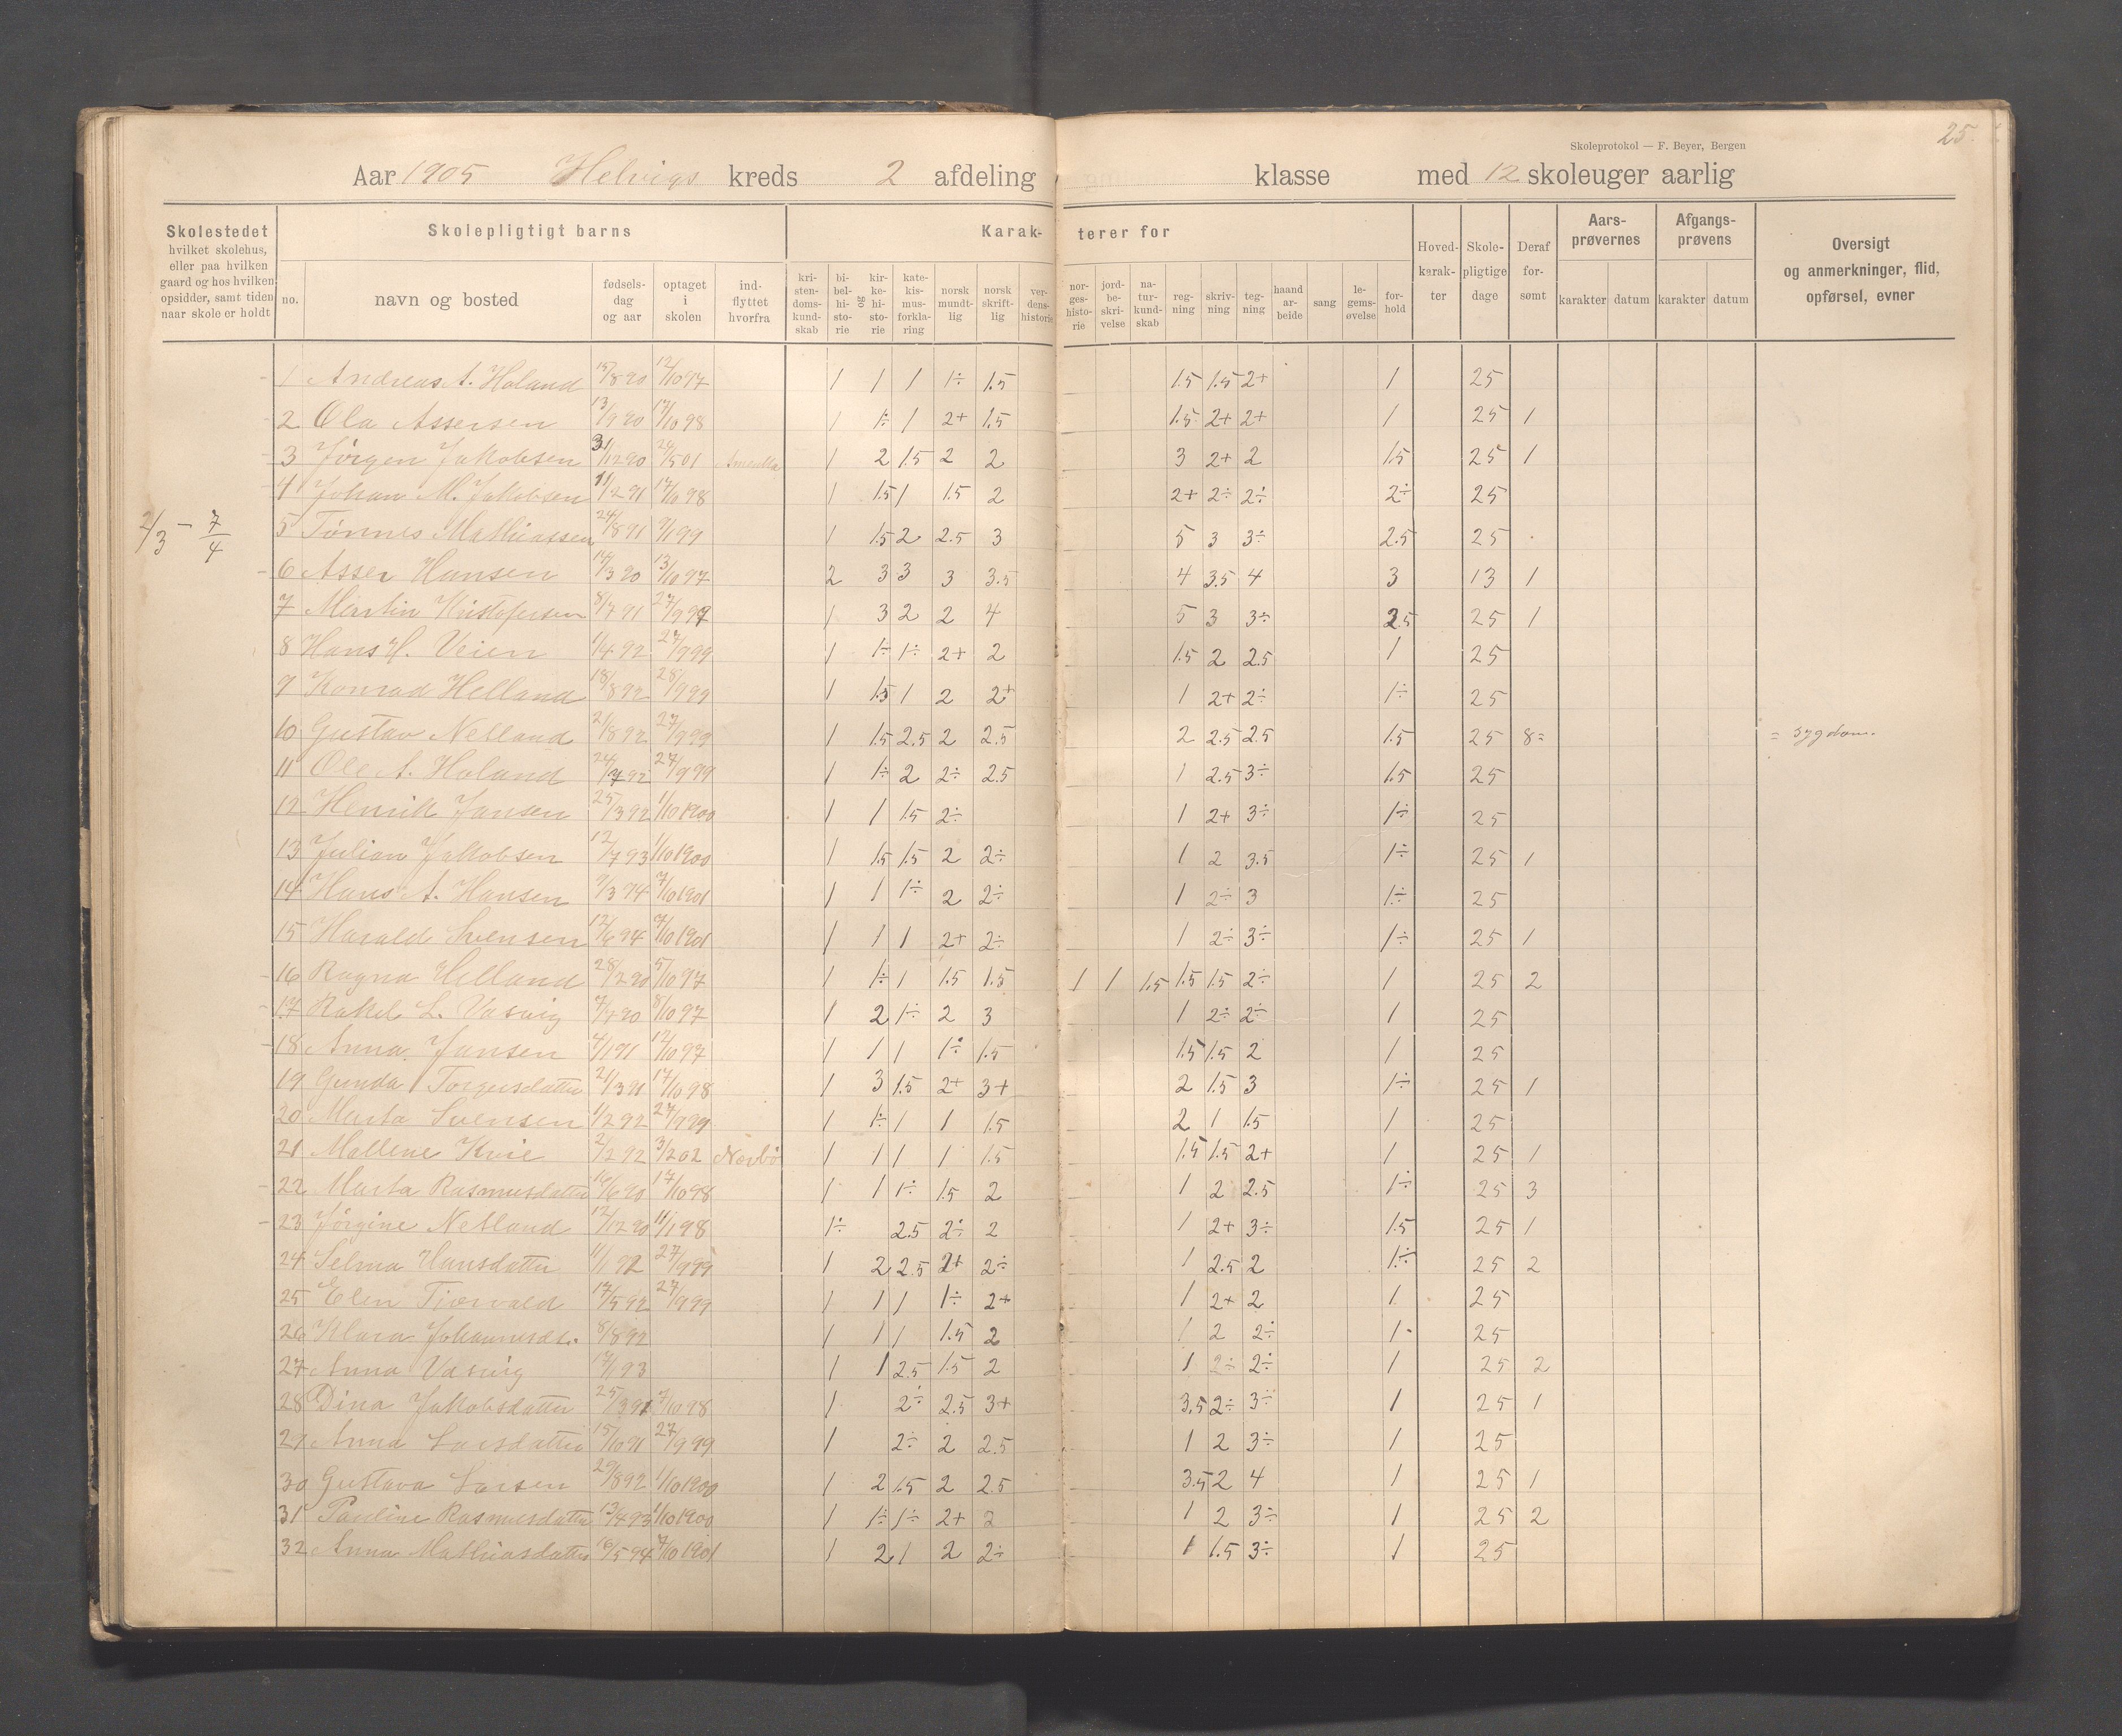 Skoleprotokol — F. Beyer, Bergen
25
Aar 1905 Helvigs kreds 2 afdeling klasse med 12 skoleuger aarlig
Skolestedet hvilket skolehus, eller paa hvilken gaard og hos hvilken opsidder, samt tiden naar skole er holdt
Skolepligtigt barns
no. navn og bosted fødsels-dag og aar optaget i skolen ind-flyttet hvorfra
Karak- terer for
kri-sten-doms-kund-skab bi-bel-hi-sto-rie og kir-ke-hi-sto-rie kate-kis-mus-forkla-ring norsk mundt-lig norsk skrift-lig ver-dens-historie nor-ges-histo-rie jord-be-skri-velse na-tur-kund-skab reg-ning skriv-ning teg-ning haand ar-beide sang le-gems-øvelse for-hold
Hoved-karak-ter Skole-pligtige dage Deraf for-sømt
Aars-prøvernes karakter datum
Afgangs-prøvens karakter datum
Oversigt og anmerkninger, flid, opførsel, evner
2/3 - 7/4
1 Andreas A. Holand 15/8 90 12/10 97 1 1 1 1÷ 1.5 1.5 1.5 2+ 1 25
2 Ola Assersen 13/9 90 17/10 98 1 1÷ 1 2+ 1.5 1.5 2+ 2+ 1 25 1
3 Jørgen Jakobsen 31/12 90 1 2 1.5 2 2 3 2+ 2 1.5 25 1
4 Johan M. Jakobsen 11/2 91 17/10 98 1 1.5 1 1.5 2 2+ 2÷ 2÷ 2÷ 25
5 Tønnes Mathiassen 24/8 91 9/1 99 1 1.5 2 2.5 3 5 3 3÷ 2.5 25
6 Asser Hansen 14/3 90 13/10 97 2 3 3 3 3.5 4 3.5 4 3 13 1
7 Martin Kristofersen 8/7 91 27/9 97 1 3 2 2 4 5 3 3÷ 2.5 25 1
8 Hans H. Veien 1/4 92 27/9 99 1 1÷ 1÷ 2+ 2 1.5 2 2.5 1 25
9 Konrad Helland 18/8 92 28/9 99 1 1.5 1 2 2+ 1 2+ 2÷ 1÷ 25
10 Gustav Nelland 21/8 92 27/9 99 1 1.5 2.5 2 2.5 2 2.5 2.5 1.5 25 8= = sygdom.
11 Ole A. Holand 24/7 92 27/9 99 1 1÷ 2 2÷ 2.5 1 2.5 3÷ 1.5 25
12 Henrik Jansen 25/3 92 1/10 1900 1 1 1.5 2÷ 1 2+ 3÷ 1÷ 25
13 Julian Jakobsen 12/7 93 1/10 1900 1 1.5 1.5 2 2÷ 1 2 3.5 1÷ 25 1
14 Hans A. Hansen 9/3 94 7/10 1901 1 1 1÷ 2 2÷ 1 2÷ 3 1÷ 25
15 Harald Svensen 12/6 94 7/10 1901 1 1 1 2+ 2÷ 1 2÷ 3÷ 1÷ 25 1
16 Ragna Helland 28/2 90 5/10 97 1 1÷ 1 1.5 1.5 1 1 1.5 1.5 1.5 2÷ 1 25 2
17 Rakel L. Vasvig 8/10 97 1 2 1÷ 2 3 1 2÷ 2÷ 1 25
18 Anna Jansen 4/1 91 12/10 97 1 1 1 1÷ 1.5 1.5 1.5 2 1 25
19 Gunda Torgersdatter 21/3 91 17/10 98 1 3 1.5 2+ 3+ 2 1.5 3 1÷ 25 1
20 Marta Svensen 1/2 92 27/9 99 1 1÷ 1 1 1.5 2 1 1.5 1 25
21 Mallene Kvie 2/2 92 3/2 02 Nærbø 1 1 1 1 1.5 1.5 1.5 2+ 1 25 1
22 Marta Rasmusdatter 16/6 90 17/10 98 1 1 1÷ 1.5 2 1 2 2.5 1÷ 25 3
23 Jørgine Netland 12/12 90 11/1 98 1÷ 2.5 2÷ 2 1 2+ 3÷ 1.5 25 1
24 Selma Hansdatter 11/1 92 27/9 99 1 2 2.5 2+ 2÷ 1 2.5 2 1÷ 25 2
25 Elen Tjørvald 17/5 92 27/9 99 1 1 1 1÷ 2+ 1 2+ 2 1 25
26 Klara Johannesd. 8/8 92 1 1 1 1.5 2 1 2 2÷ 1 25
27 Anna Vasvig 17/1 93 1 1 2.5 1.5 2 1 2÷ 2÷ 1 25 2
28 Dina Jakobsdatter 25/3 91 7/10 98 1 2÷ 2.5 3+ 3.5 2÷ 3÷ 1 25 1
29 Anna Larsdatter 15/10 91 27/9 99 1 2÷ 2 2.5 1 2 3÷ 1 25
30 Gustava Larsen 29/8 92 1/10 1900 1 2 1.5 2 2.5 3.5 2 4 1 25 1
31 Pauline Rasmusdatter 13/4 93 1/10 1900 1 1÷ 1÷ 2+ 2 1 2 3÷ 1 25 2
32 Anna Mathiasdatter 16/5 94 7/10 1901 1 2 1 2 2÷ 1 1.5 3÷ 1 25